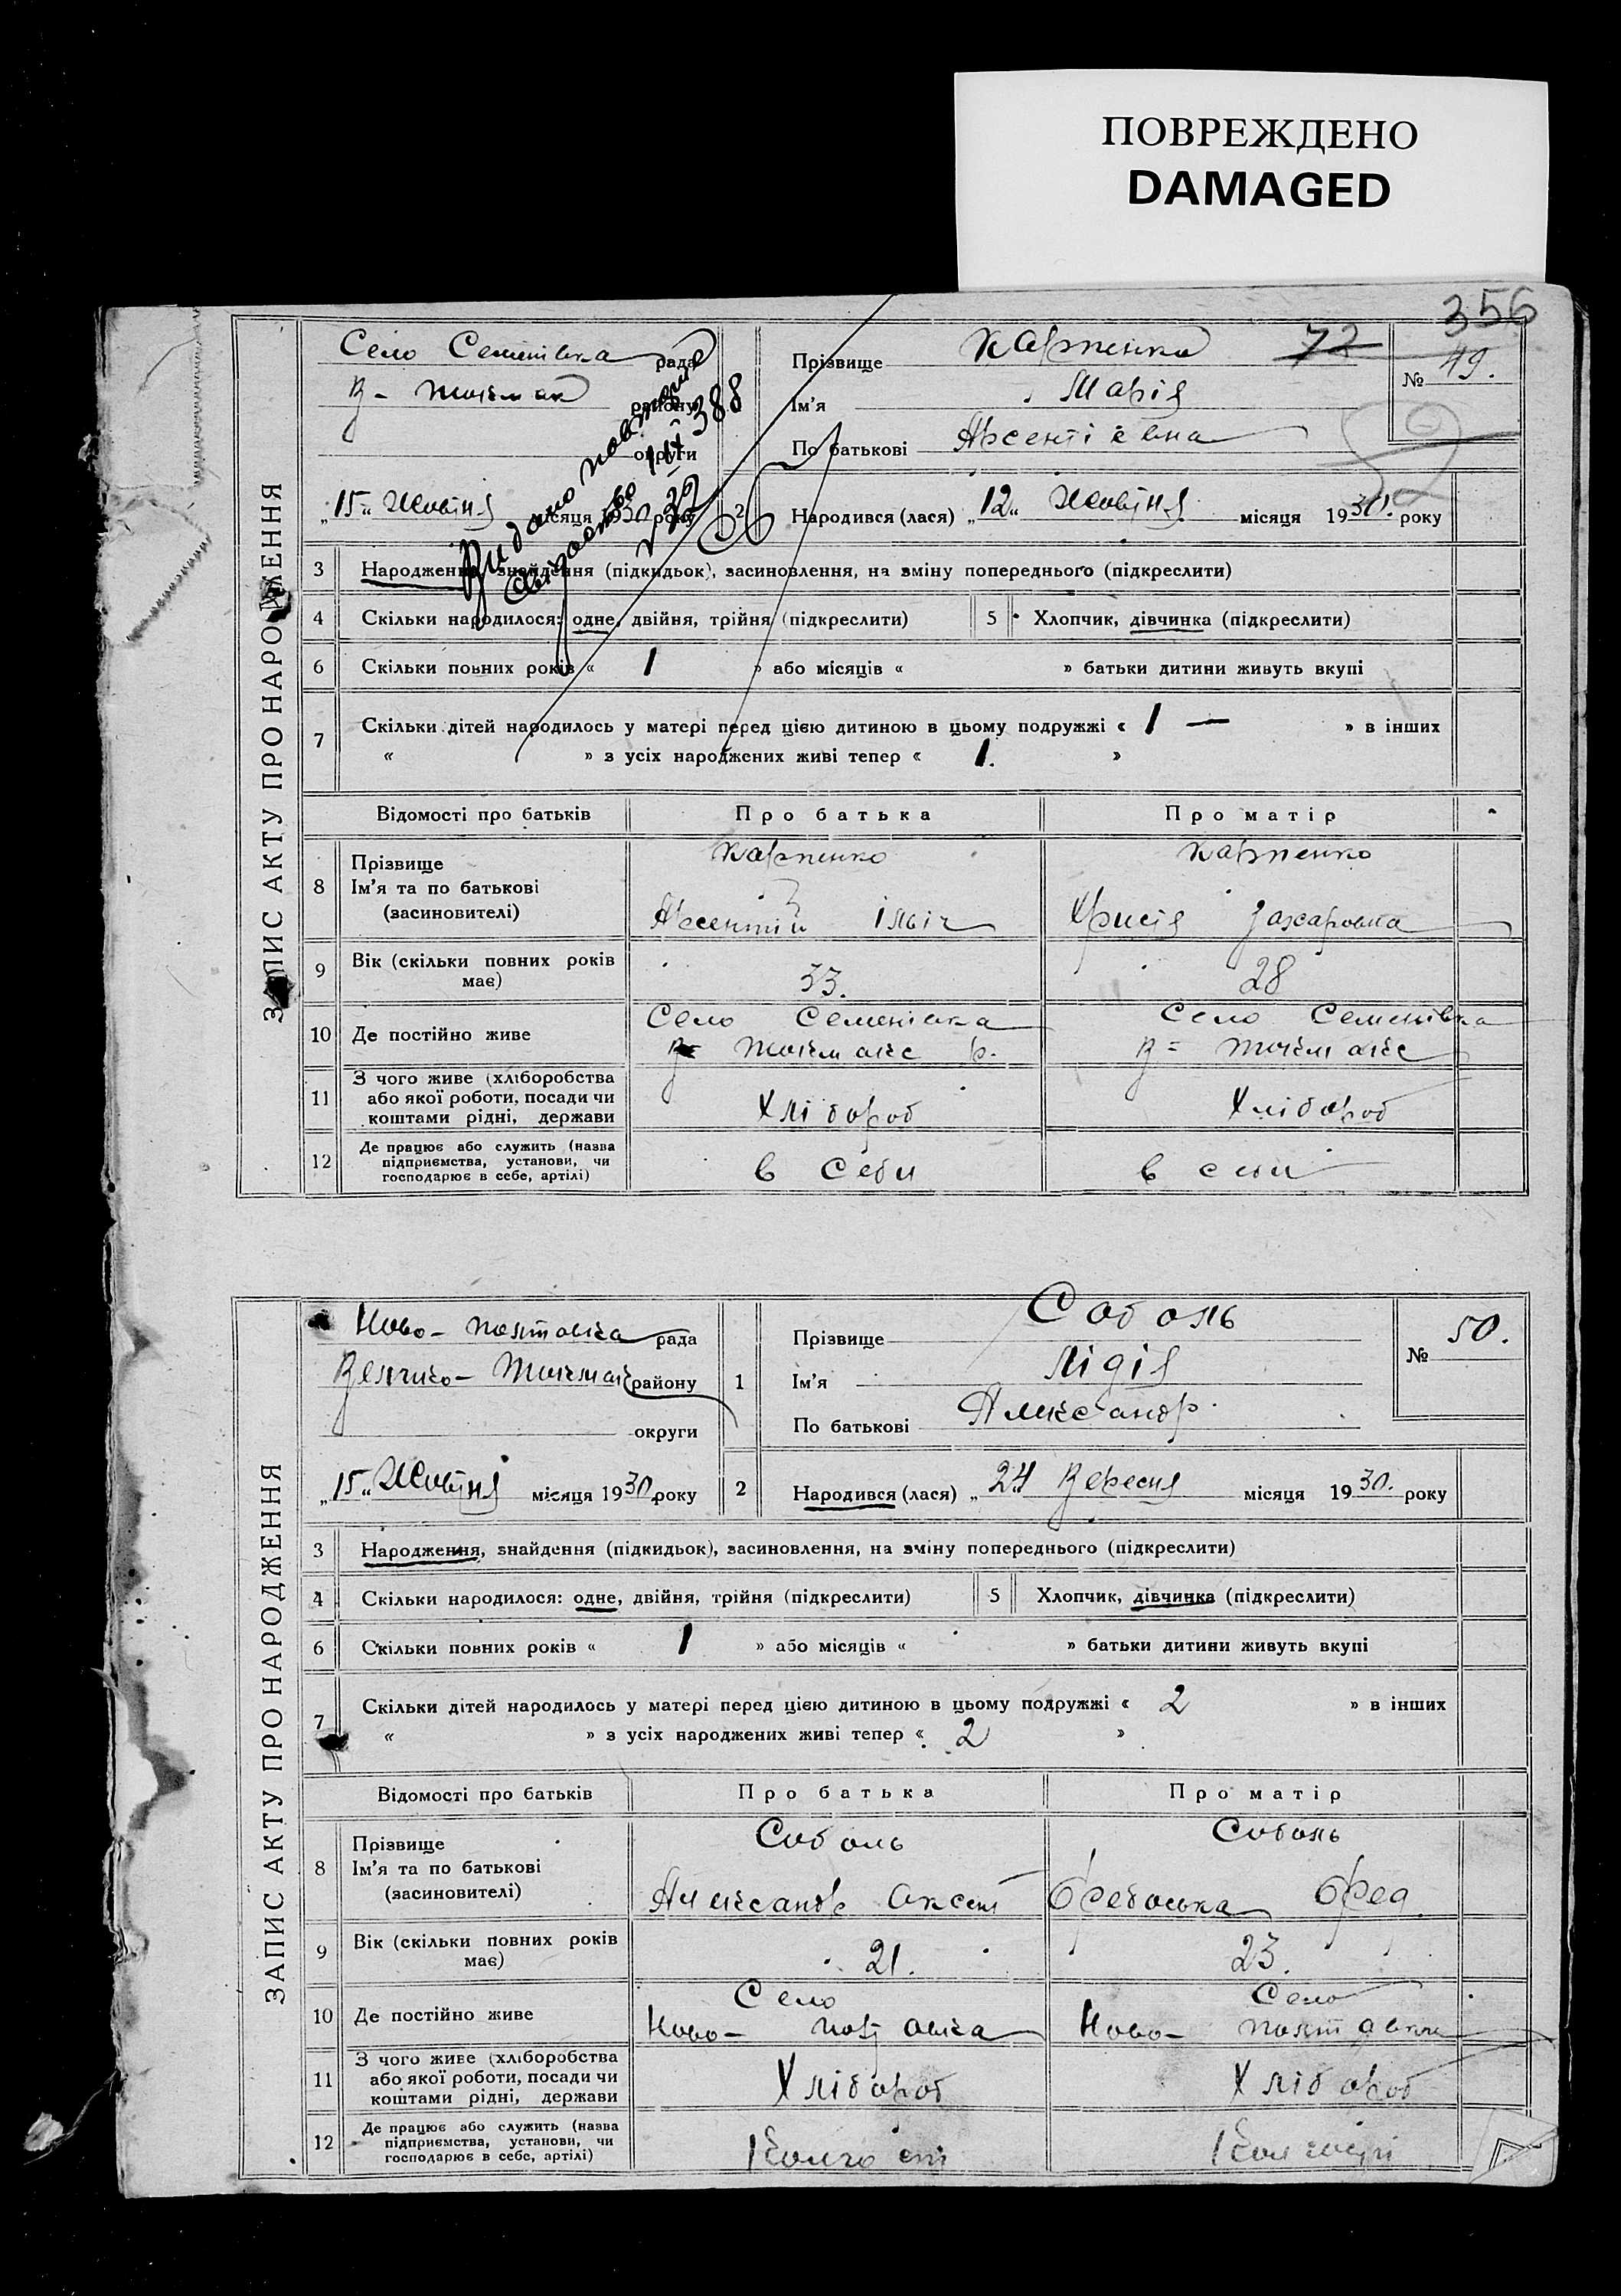 ПОВРЕЖДЕНО
DAMAGED
356
ЗАПИС АКТУ ПРО НАРОДЖЕННЯ
Село Семенівка рада
В- Токмак району
округи
„15" Жовтня місяця 1930 року
Видано повторне
свідоцтво
Прізвище Карпенко 72
Ім'я Марія
По батькові Арсентієвна
№ 49.
2 Народився (лася) „12" Жовтня місяця 1930. року
3 Народження, знайдення (підкидьок), засиновлення, на зміну попереднього (підкреслити)
4 Скільки народилося: одне, двійня, трійня (підкреслити) 5 Хлопчик, дівчинка (підкреслити)
6 Скільки повних років « 1 » або місяців « » батьки дитини живуть вкупі
7 Скільки дітей народилось у матері перед цією дитиною в цьому подружжі « 1 — » в інших
« » з усіх народжених живі тепер « 1. »
Відомості про батьків Про батька Про матір
8 Прізвище Ім'я та по батькові (засиновителі)
Карпенко Карпенко
Арсентій Ільіч Хрисія Захаровна
9 Вік (скільки повних років має) 33. 28
10 Де постійно живе
Село Семенівка Село Семенівка
В= Токмакс р. В= Токмакс
11 З чого живе (хліборобства або якої роботи, посади чи коштами рідні, держави
Хлібороб Хлібороб
12 Де працює або служить (назва підприємства, установи, чи господарює в себе, артілі)
в себи в себи
ЗАПИС АКТУ ПРО НАРОДЖЕННЯ
Ново- Полтавка рада
Велико- Токмак району
округи
„15" Жовтня місяця 1930. року
1 Прізвище Соболь
Ім'я Лідія
По батькові Александр.
№ 50.
2 Народився (лася) „24 Вересня місяця 1930. року
3 Народження, знайдення (підкидьок), засиновлення, на зміну попереднього (підкреслити)
4 Скільки народилося: одне, двійня, трійня (підкреслити) 5 Хлопчик, дівчинка (підкреслити)
6 Скільки повних років « 1 » або місяців « » батьки дитини живуть вкупі
7 Скільки дітей народилось у матері перед цією дитиною в цьому подружжі « 2 » в інших
« » з усіх народжених живі тепер « 2 »
Відомості про батьків Про батька Про матір
8 Прізвище Ім'я та по батькові (засиновителі)
Соболь Соболь
Александр Аксент Фед.
9 Вік (скільки повних років має) 21. 23.
10 Де постійно живе
Село Село
Ново- Полтавка Ново- Полтавка
11 З чого живе (хліборобства або якої роботи, посади чи коштами рідні, держави
Хлібороб Хлібороб
12 Де працює або служить (назва підприємства, установи, чи господарює в себе, артілі)